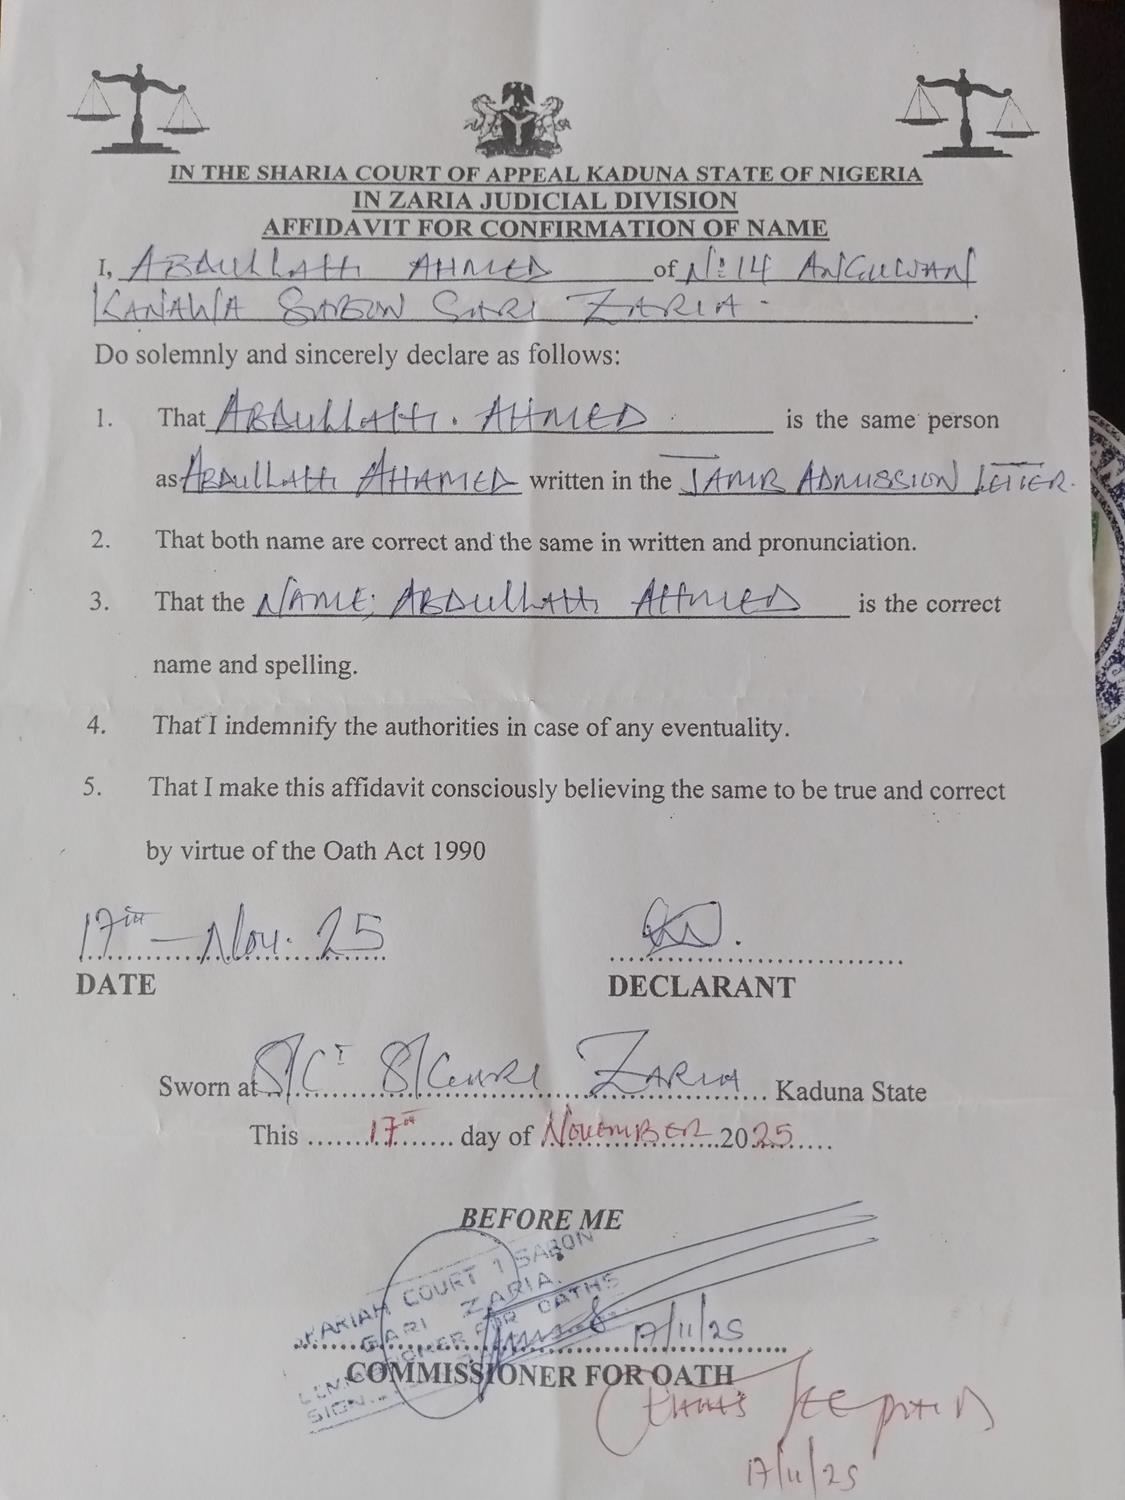 IN THE SHARIA COURT OF APPEAL KADUNA STATE OF NIGERIA
IN ZARIA JUDICIAL DIVISION
AFFIDAVIT FOR CONFIRMATION OF NAME
I, ABDULLAHI AHMED of No: 14 ANGUWAN
KANAWA SABON GARI ZARIA.
Do solemnly and sincerely declare as follows:
1. That ABDULLAHI. AHMED is the same person
as ABDULLAHI AHAMED written in the JAMB ADMISSION LETTER.
2. That both name are correct and the same in written and pronunciation.
3. That the NAME; ABDULLAHI AHMED is the correct
name and spelling.
4. That I indemnify the authorities in case of any eventuality.
5. That I make this affidavit consciously believing the same to be true and correct
by virtue of the Oath Act 1990
17th - Nov. 25
DATE DECLARANT
Sworn at S/CT S/GARI ZARIA Kaduna State
This 17th day of NOVEMBER 2025
BEFORE ME
SHARIAH COURT 1 SABON
GARI ZARIA.
COMMISSIONER FOR OATHS
SIGN...
17/11/25
COMMISSIONER FOR OATH
17/11/25